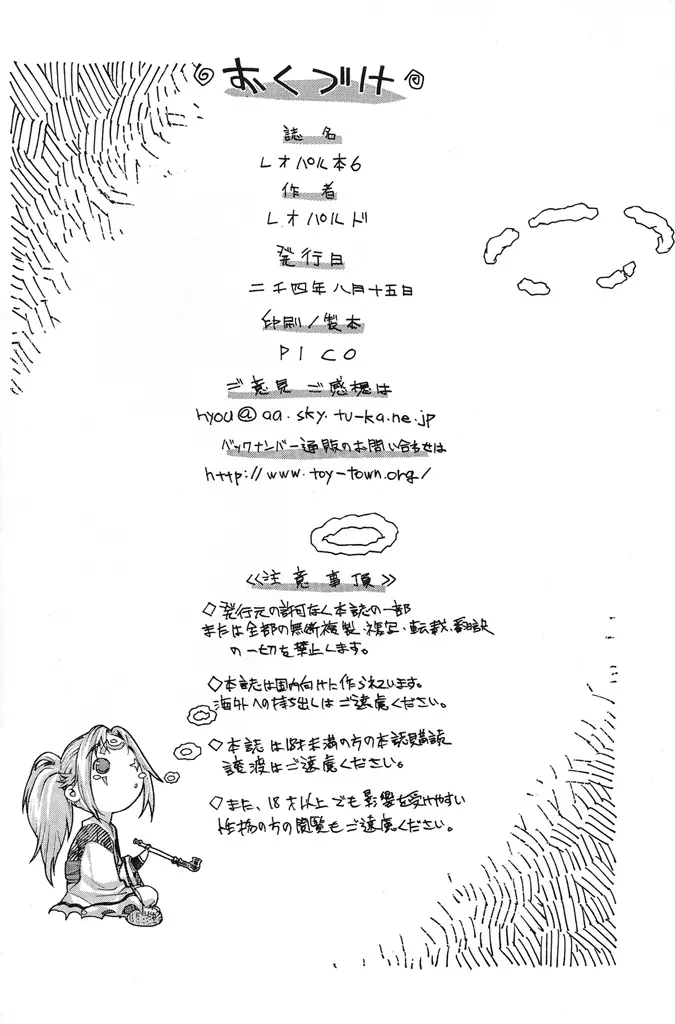 おくづけ
誌名
レオパル本6
作者
レオパルド
発行日
二千四年八月十五日
印刷／製本
PICO
ご意見ご感想は
hyou@aa.sky.tu-ka.ne.jp
バックナンバー通販のお問い合せは
http://www.toy-town.org/
《注意事項》
◇発行元の許可なく本誌の一部
または全部の無断複製、複写、転載、翻訳
の一切を禁止します。
◇本誌は国内向けに作られています。
海外への持ち出しはご遠慮ください。
◇本誌は18才未満の方の本誌購読
譲渡はご遠慮ください。
◇また、18才以上でも影響を受けやすい
性格の方の閲覧もご遠慮ください。